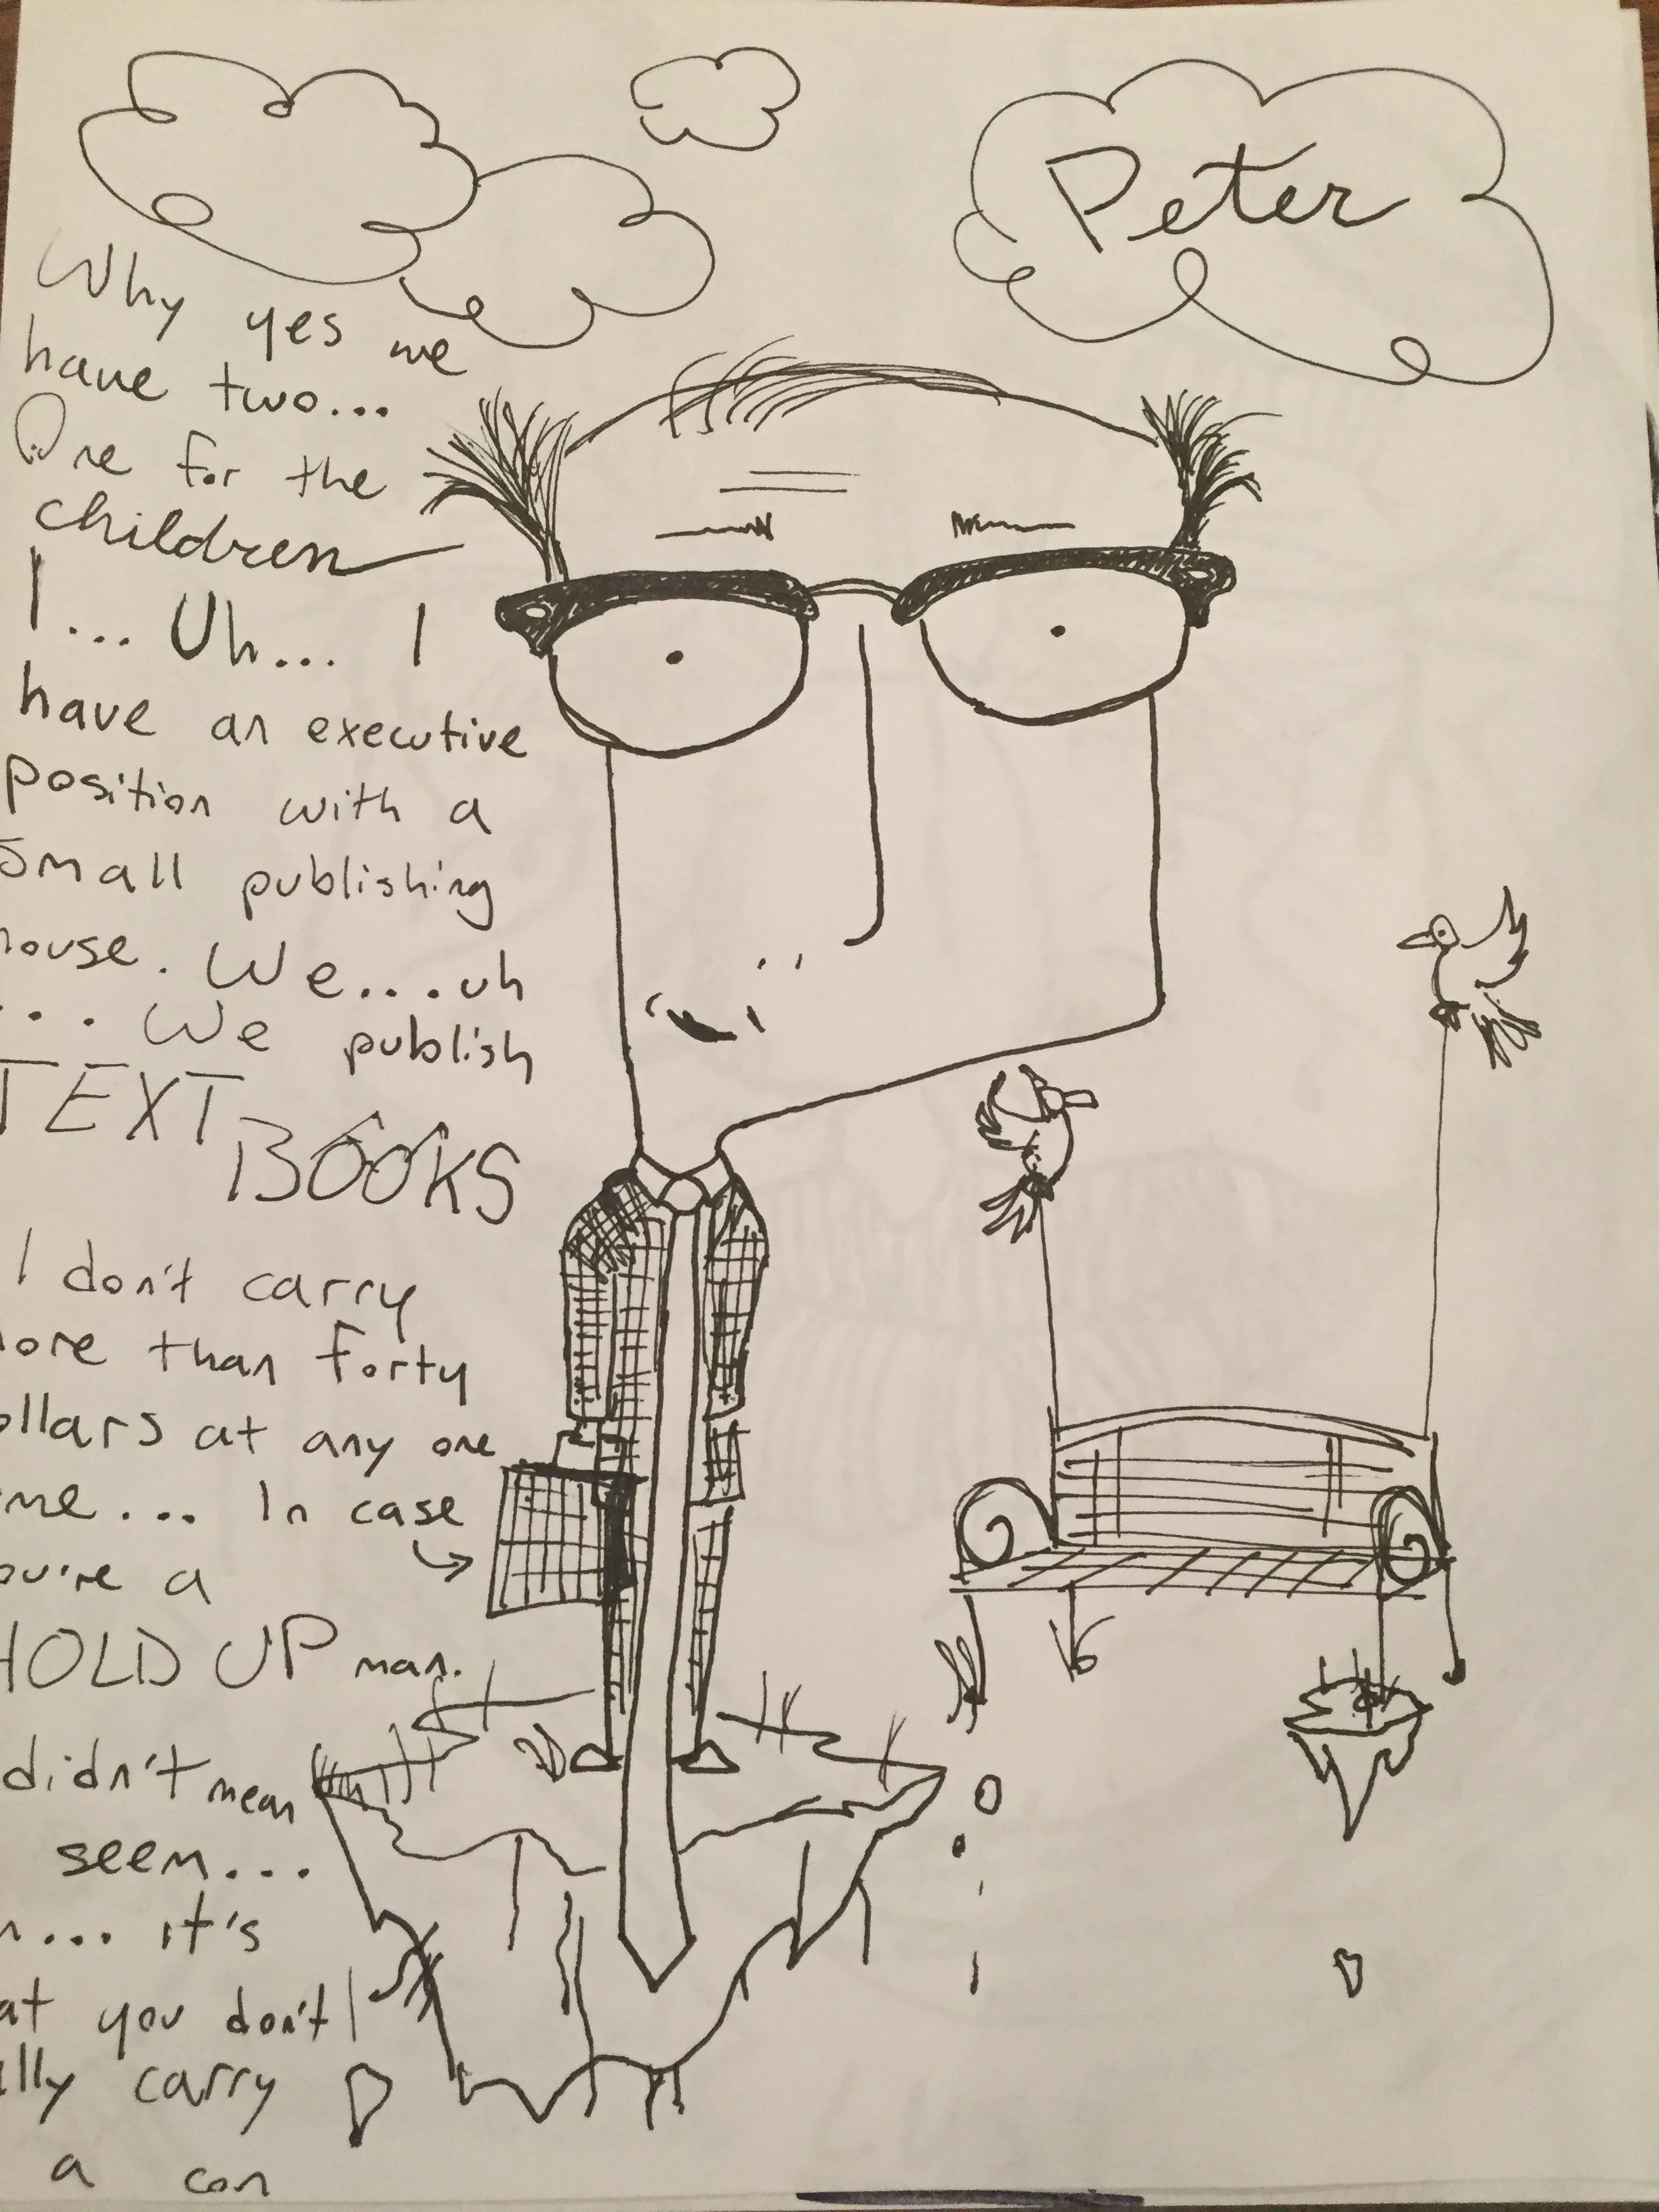 Peter
Why yes we
have two...
One for the
children
I... Uh... I
have an executive
position with a
small publishing
house. We....uh
... We publish
TEXT BOOKS
I don't carry
ore than forty
ollars at any one
me... In case
ou're a
HOLD UP man.
didn't mean
seem...
... it's
at you don't
lly carry
a con